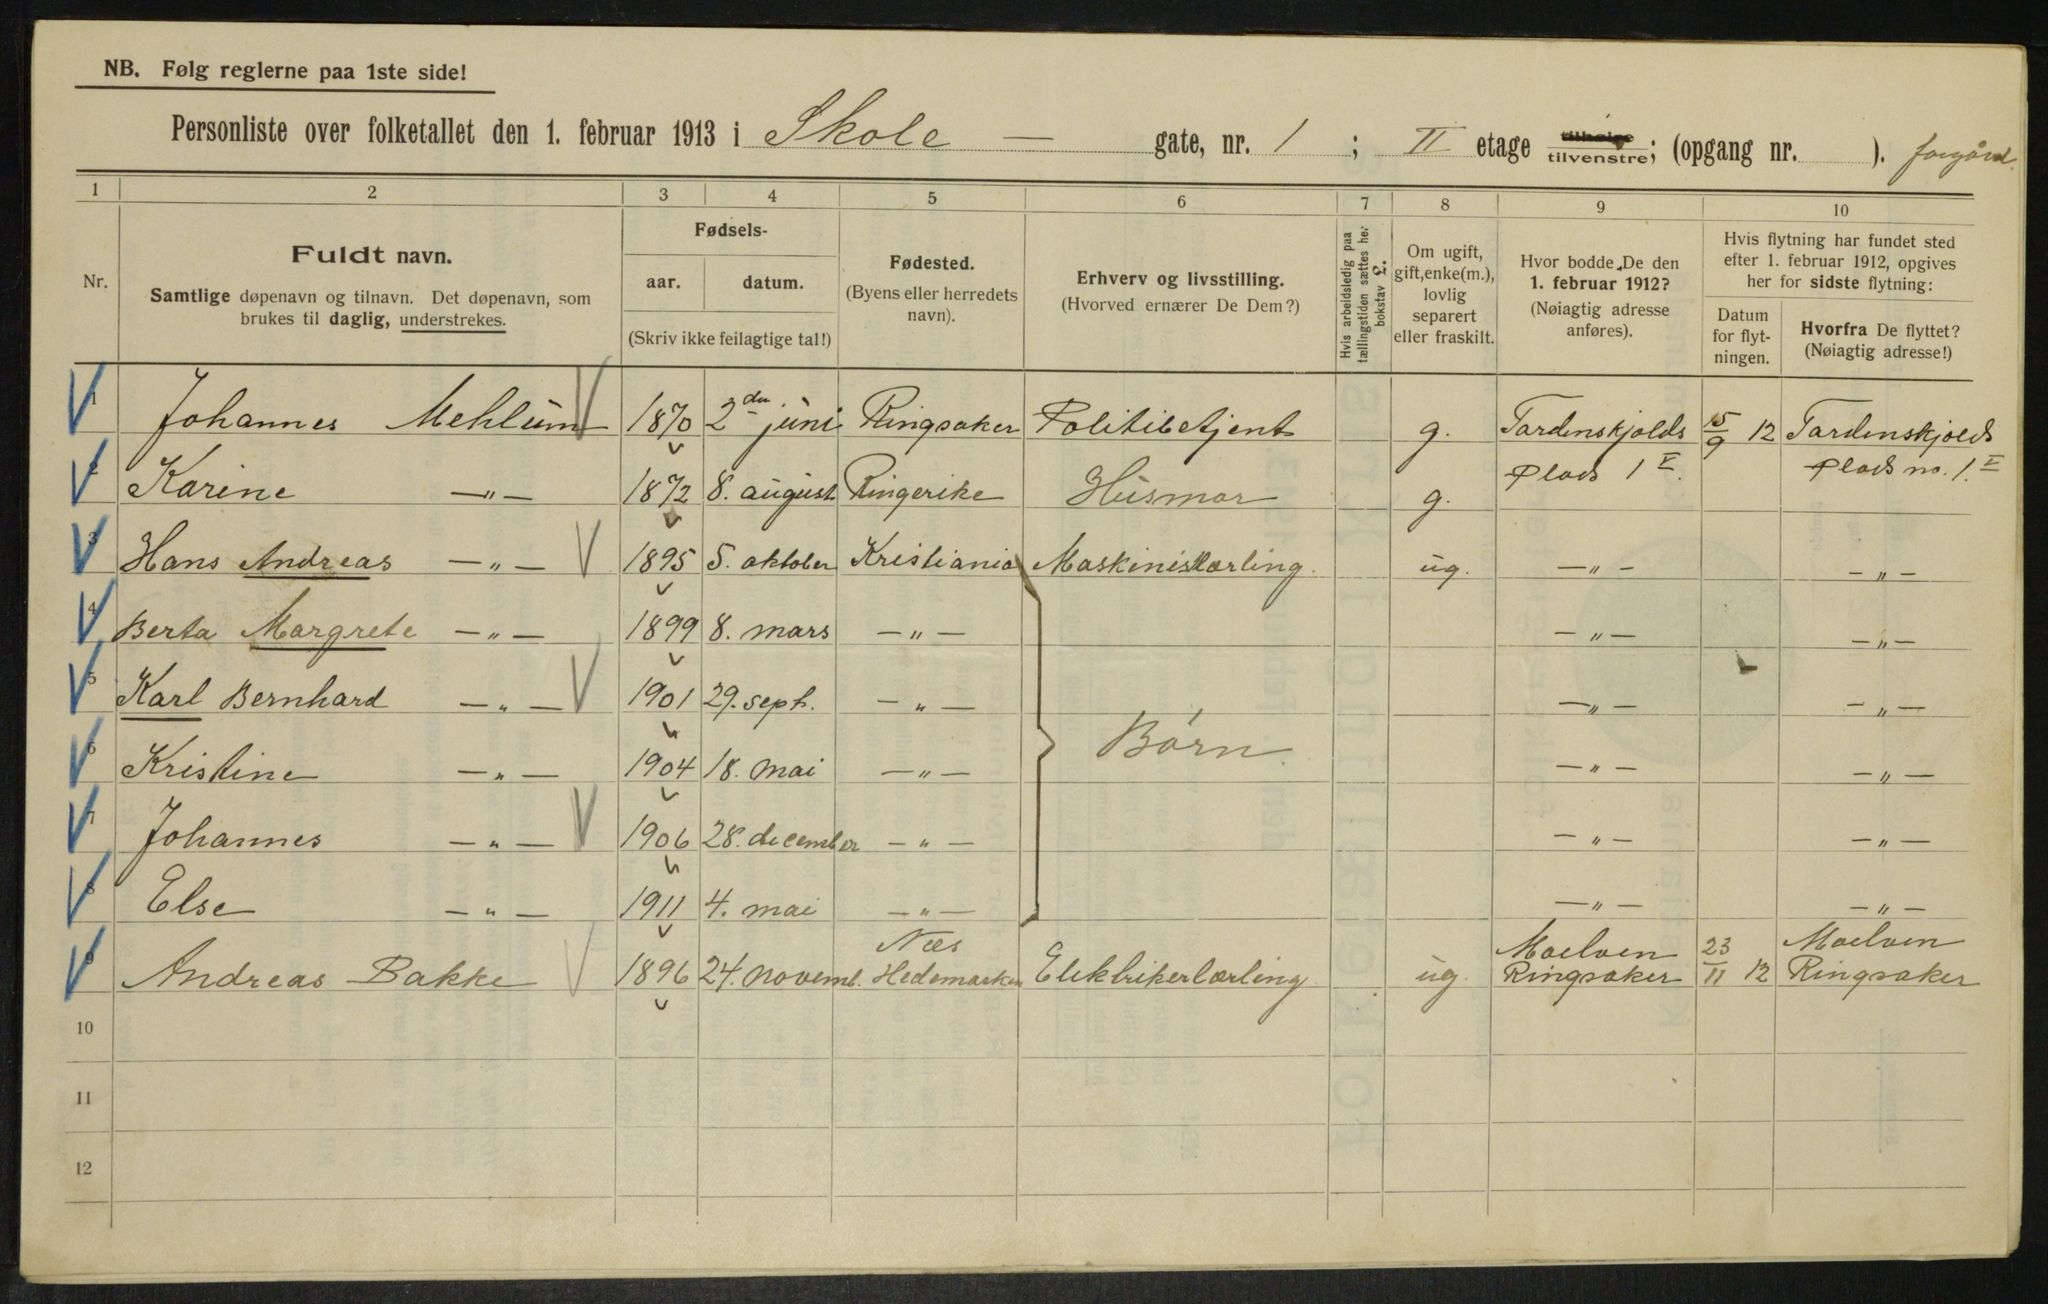 NB. Følg reglerne paa 1ste side!
Personliste over folketallet den 1. februar 1913 i Skole — gate, nr. 1 ; II etage tilhøire tilvenstre; (opgang nr. ). forgård.
1 2 3 4 5 6 7 8 9 10
Nr.
Fuldt navn.
Samtlige døpenavn og tilnavn. Det døpenavn, som
brukes til daglig, understrekes.
Fødsels-
aar. datum.
(Skriv ikke feilagtige tal!)
Fødested.
(Byens eller herredets
navn).
Erhverv og livsstilling.
(Hvorved ernærer De Dem?)
Hvis arbeidsledig paa
tællingstiden sættes her
bokstav L.
Om ugift,
gift, enke(m.),
lovlig
separert
eller fraskilt.
Hvor bodde De den
1. februar 1912?
(Nøiagtig adresse
anføres).
Hvis flytning har fundet sted
efter 1. februar 1912, opgives
her for sidste flytning:
Datum
for flyt-
ningen.
Hvorfra De flyttet?
(Nøiagtig adresse!)
1 Johannes Mehlum 1870 2den juni Ringsaker Politibetjent g. Tordenskjolds 15/9 12 Tordenskjolds
Plads 1 V. Plads no. 1. V
2 Karine —„— 1872 8. august Ringerike Husmor g.
3 Hans Andreas —„— 1895 5. oktober Kristiania Maskinistlærling. ug. —„— —„—
4 Berta Margrete —„— 1899 8. mars —„— —„— —„—
5 Karl Bernhard —„— 1901 29. sept. —„— —„— —„—
Børn.
6 Kristine —„— 1904 18. mai —„— —„— —„—
7 Johannes —„— 1906 28. december —„— —„— —„—
8 Else —„— 1911 4. mai —„— —„— —„—
Næs Moelven Moelven
9 Andreas Bakke 1896 24. novemb. Hedemarken Elektrikerlærling ug. Ringsaker 23/11 12 Ringsaker
10
11
12